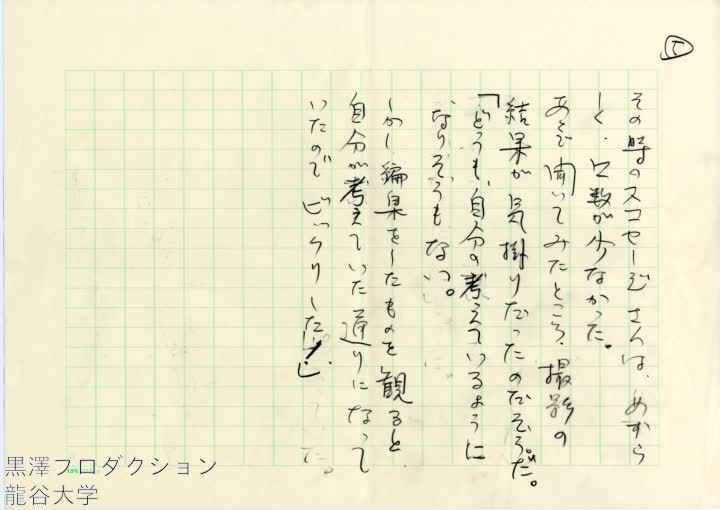 ⑤
その時のスコセージさんは、めずら
しく、口数が少なかった。
あとで聞いてみたところ、撮影の
結果が気掛りだったのだそうだ。
「どうも、自分の考えているように
なりそうもない。
しかし編集をしたものを観ると
自分が考えていた通りになって
いたのでビックリした!」
黒澤プロダクション
龍谷大学